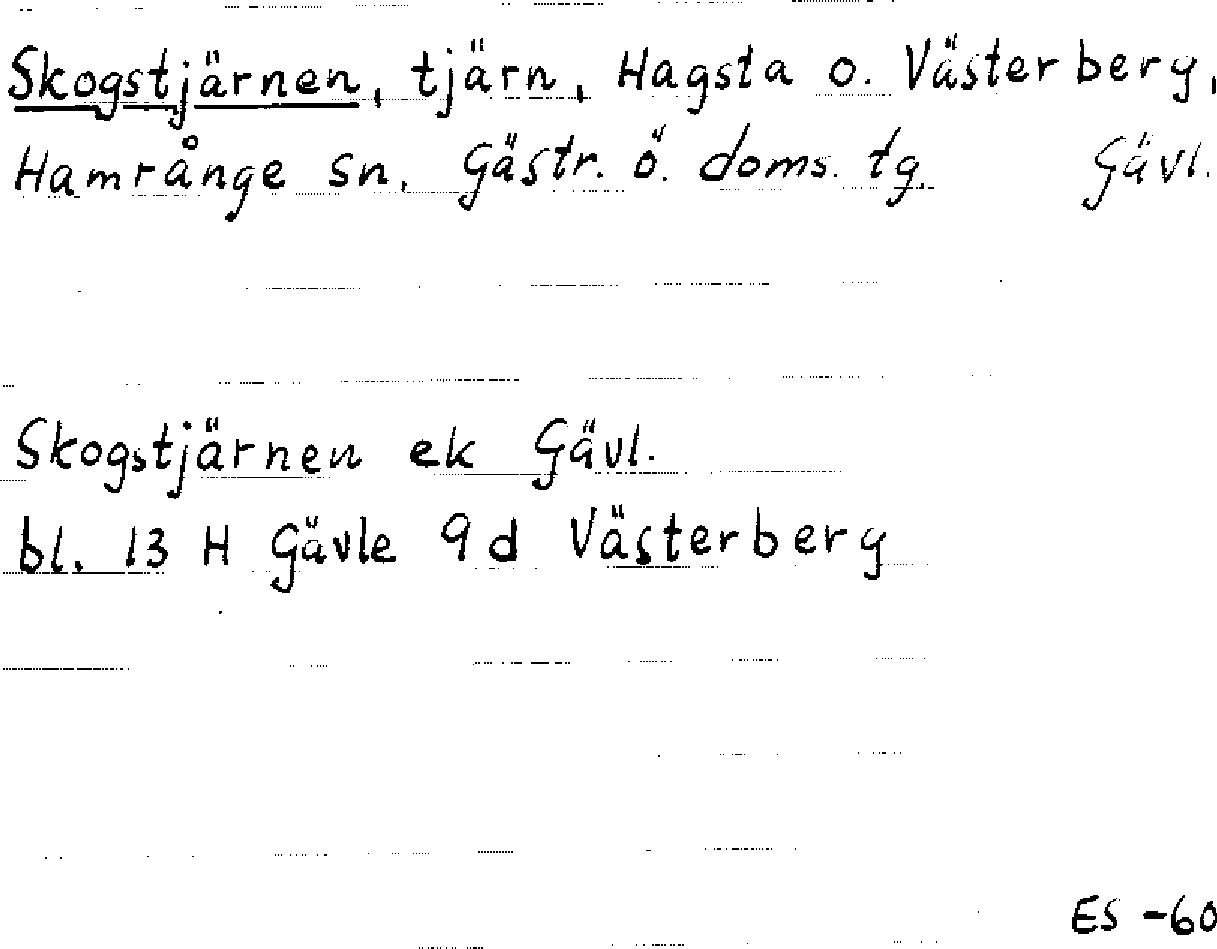 Skogstjärnen, tjärn, Hagsta o. Västerberg,
Hamrånge sn. Gästr. ö. doms. tg. Gävl.
Skogstjärnen ek Gävl.
bl. 13 H Gävle 9 d Västerberg
ES -60